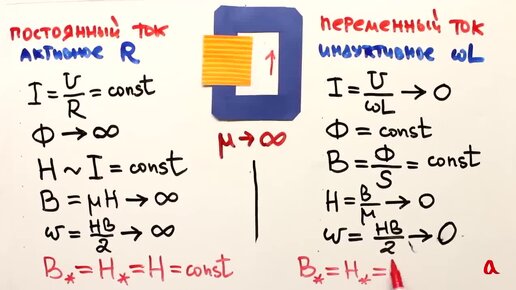 постоянный ток
активное R
I = U/R = const
Φ → ∞
H ~ I = const
B = μH → ∞
w = HB/2 → ∞
B* = H* = H = const
μ → ∞
переменный ток
индуктивное ωL
I = U/ωL → 0
Φ = const
B = Φ/S = const
H = B/μ → 0
w = HB/2 → 0
B* = H* =
a